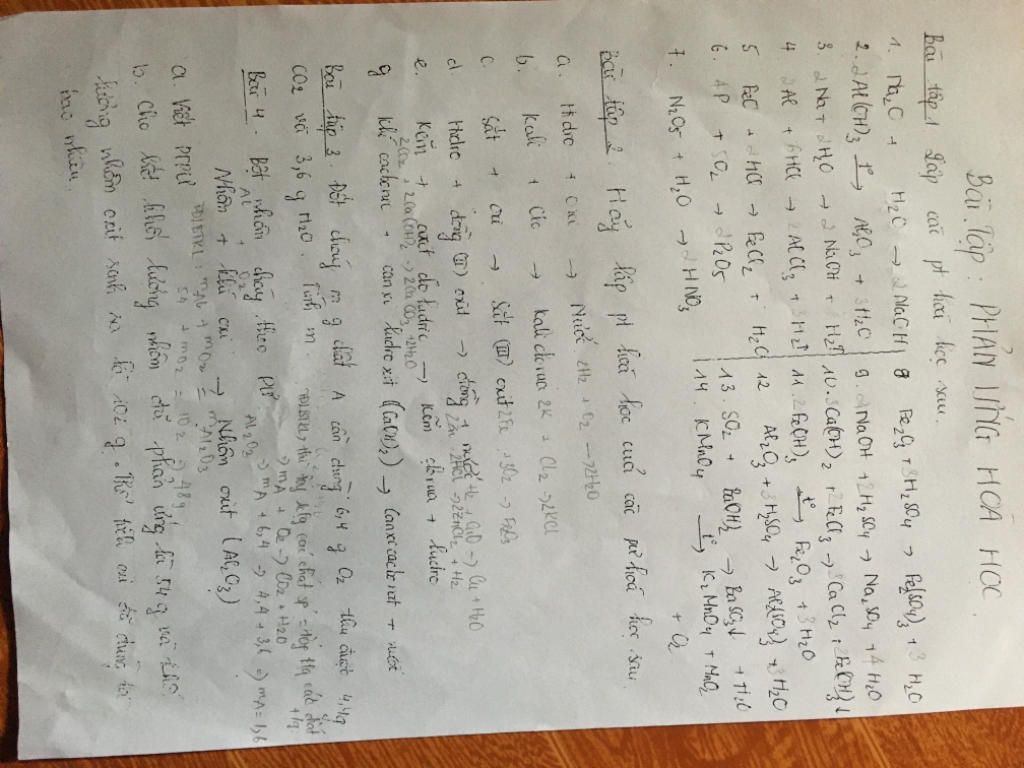 Bài Tập : PHẢN ỨNG HÓA HỌC.
Bài tập 1 Lập các pt hoá học sau.
1. Na2O + H2O → 2NaOH
2. 2Al(OH)3 t°→ Al2O3 + 3H2O
3. 2Na + 2H2O → 2NaOH + H2↑
4. 2Al + 6HCl → 2AlCl3 + 3H2↑
5 FeO + 2HCl → FeCl2 + H2O
6. 4P + 5O2 → 2P2O5
7. N2O5 + H2O → 2HNO3
8 Fe2O3 + 3H2SO4 → Fe2(SO4)3 + 3H2O
9. 2NaOH + H2SO4 → Na2SO4 + H2O
10. 3Ca(OH)2 + 2FeCl3 → 3CaCl2 + 2Fe(OH)3↓
11. 2Fe(OH)3 t°→ Fe2O3 + 3H2O
12 Al2O3 + 3H2SO4 → Al2(SO4)3 + 3H2O
13. SO2 + Ba(OH)2 → BaSO3↓ + H2O
14. KMnO4 t°→ K2MnO4 + MnO2 + O2
Bài tập 2. Hãy lập pt hoá học của các pư hoá học sau.
a. Hidro + oxi → Nước. 2H2 + O2 → 2H2O
b. Kali + Clo → Kali clorua 2K + Cl2 → 2KCl
c. Sắt + oxi → Sắt (III) oxit
d. Hidro + đồng (II) oxit → đồng + nước H2 + CuO → Cu + H2O
e. Kẽm + axit clohidric → kẽm clorua + hidro
g Khí cacbonic + canxi hidroxit (Ca(OH)2) → Canxi cacbonat + nước
Bài tập 3. Đốt cháy m g chất A cần dùng 6,4 g O2 thu được 4,4g
CO2 và 3,6 g H2O. Tính m.
mA + 6,4 → 4,4 + 3,6 ⇒ mA = 1,6
Bài 4. Bột nhôm cháy theo PƯ
Al + O2 Al2O3
Nhôm + khí oxi → Nhôm oxit (Al2O3)
a. Viết PTPƯ
mAl + mO2 = mAl2O3
54 + mO2 = 102 ⇒ 48g
b. Cho biết khối lượng nhôm đã phản ứng là 54 g và khối
lượng nhôm oxit sinh ra là 102 g. Thể tích oxi đã dùng là
bao nhiêu.